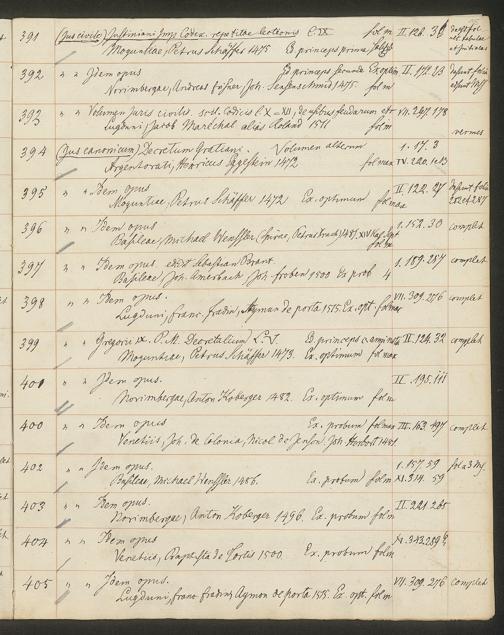 391 (Jus civile) Justiniani Imp. Codex repetitae lectionis L. IX fol m II. 128. 3
Moguntiae, Petrus Schöffer 1475 Ed princeps prima
392 " " Idem opus Ed princeps secunda Ex optim II. 172. 23 defunt fol
Norimbergae, Andreas Frisner, Joh. Sensenschmid 1475. fol m
393 " " Volumen Juris civilis. scil. Codicis l. X-XII, de usibus feudorum etc VII. 247. 178
Lugduni, Jacob Maréchal alias Roland 1511 fol m
394 (Jus canonicum) Decretum Gratiani. Volumen alterum 1. 17. 3 vermes
Argentorati, Henricus Eggestein 1472 fol max IV. 220.
395 " " Idem opus II. 122. 27 defunt folia
Moguntiae, Petrus Schöffer 1472 Ex. optimum fol max 287
396 " " Idem opus 1. 152. 30 complet
Basileae, Michael Wenssler (Spirae, Petrus Drach) 1481, XIV Kal. Sept fol m
397 " " Idem opus. edidit Sebastian Brant. 1. 189. 287 complet
Basileae, Joh. Amerbach, Joh. Froben 1500 Ex prob 4
398 " " Idem opus. VII. 309. 276 complet
Lugduni, franc. fradin, Aymon de porta 1515. Ex. opt. fol max
399 " " Gregorii IX. P. M. Decretalium L. V. Ed. princeps II. 124. 32 complet
Moguntiae, Petrus Schöffer 1473. Ex. optimum fol max
401 " " Idem opus. II. 195. 111
Norimbergae, Anton Koberger 1482. Ex. optimum fol m
400 " " Idem opus Ex. probum fol max III. 163. 497 complet
Venetiis, Joh. de Colonia, Nicol de Jenson, Joh Herbort 1481
402 " " Idem opus. 1. 157. 59
Basileae, Michael Wenssler 1486. Ex. probum fol m XI. 314. 59
403 " " Idem opus. II. 221. 265
Norimbergae, Anton Koberger 1496. Ex. probum fol m
404 " " Idem opus XI. 343. 289
Venetiis, Baptista de Tortis 1500. Ex. probum fol m
405 " " Idem opus. VII. 309. 276 complet
Lugduni, franc fradin, Aymon de porta 1515. Ex. opt. fol m